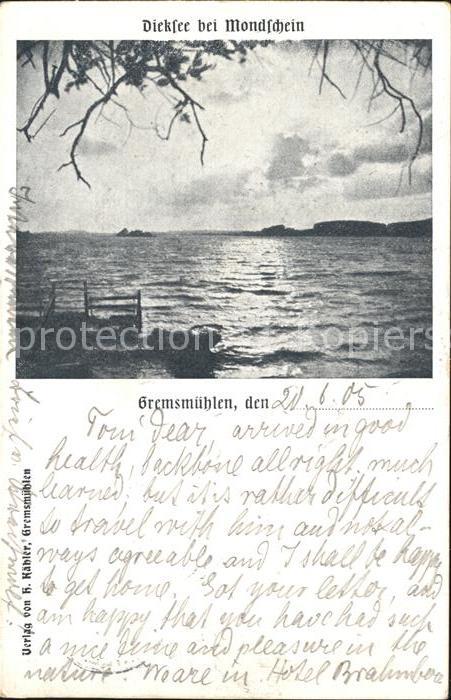 Dieksee bei Mondschein
protection copiers
Gremsmühlen, den 20.6.05
Tom dear, arrived in good
health, backbone allright, much
learned, but it is rather difficult
to travel with him and not al-
ways agreeable and I shall be happy
to get home. Got your letter, and
am happy that you have had such
a nice time and pleasure in the
nature. We are in Hotel
Verlag von H. Kähler, Gremsmühlen